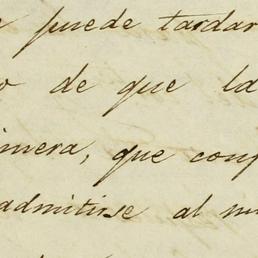 e puede tardar
o de que la
imera, que conf
admitirse al m